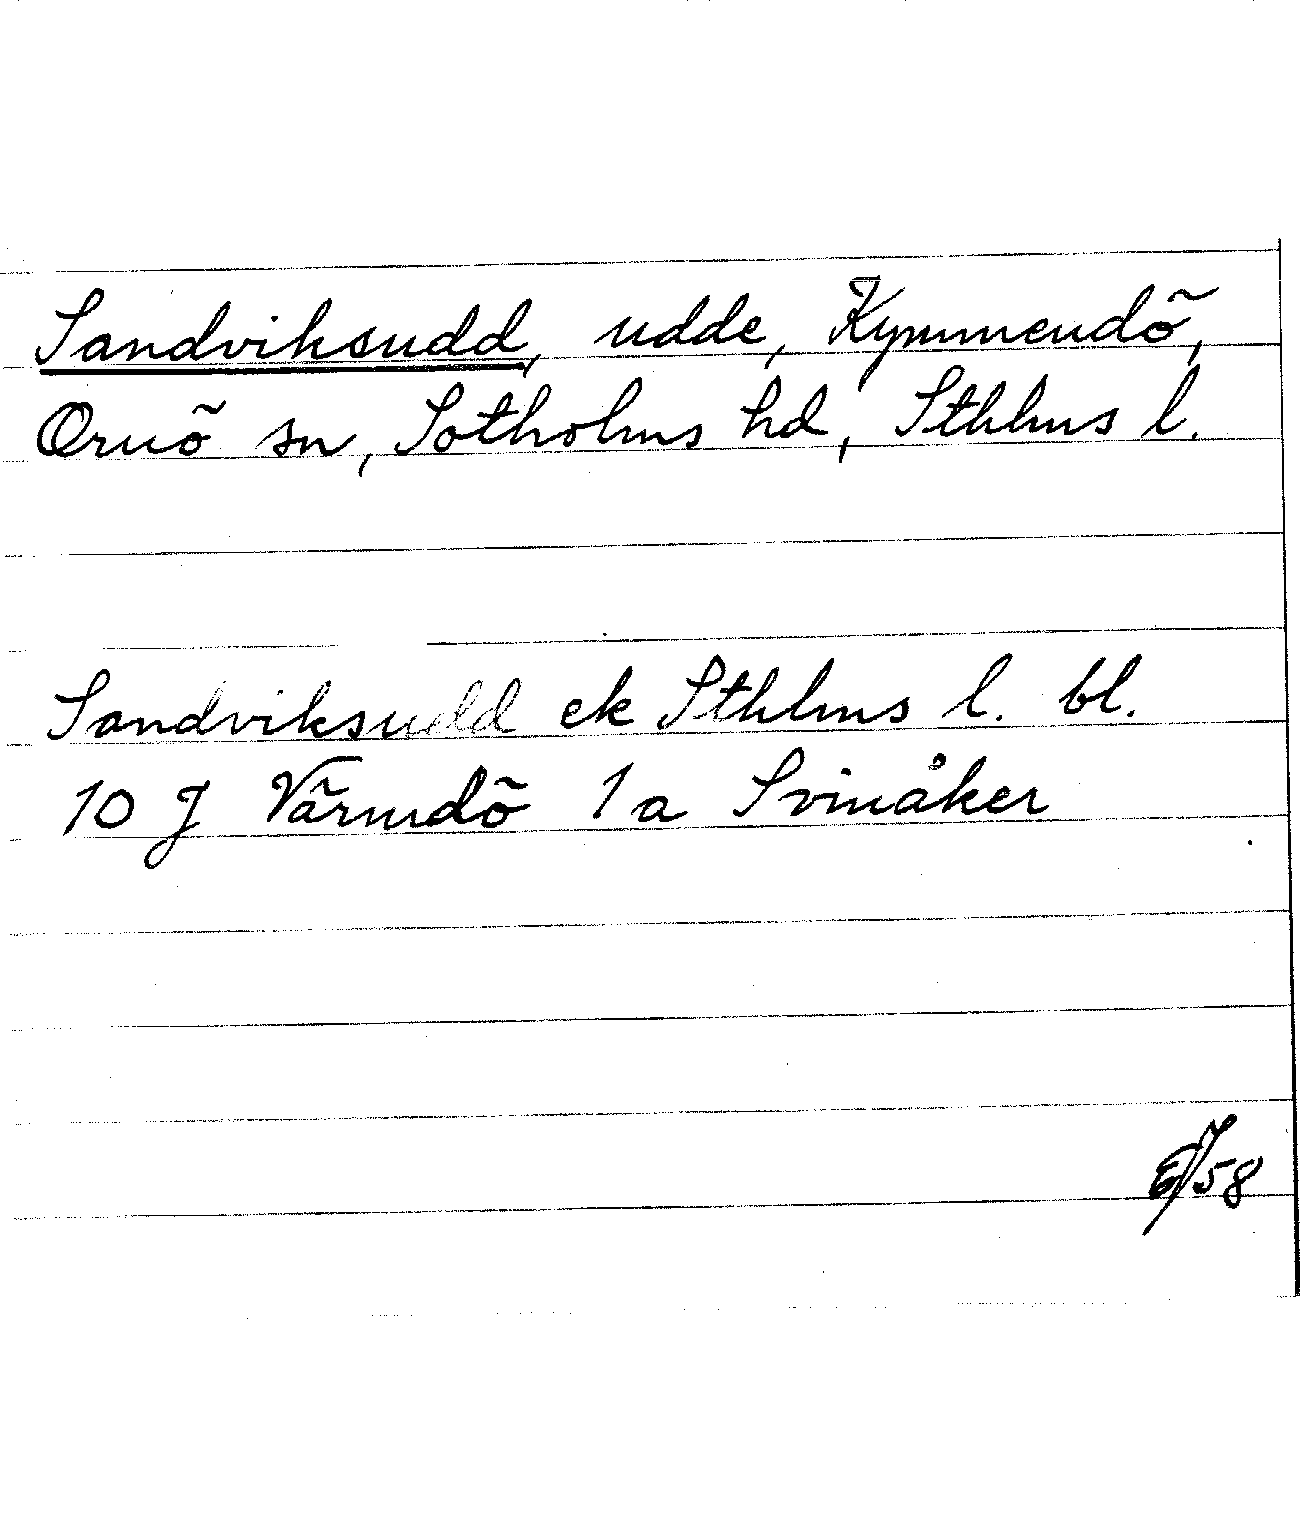 Sandviksudd, udde, Kymmendö,
Ornö sn, Sotholms hd, Sthlms l.
Sandviksudd ek Sthlms l. bl.
10 J Värmdö 1a Svinåker
58